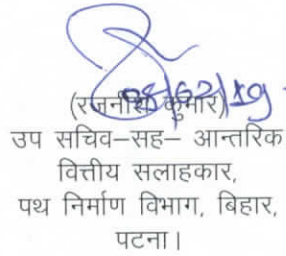 08/02/19
(रजनीश कुमार)
उप सचिव–सह– आन्तरिक
वित्तीय सलाहकार,
पथ निर्माण विभाग, बिहार,
पटना।